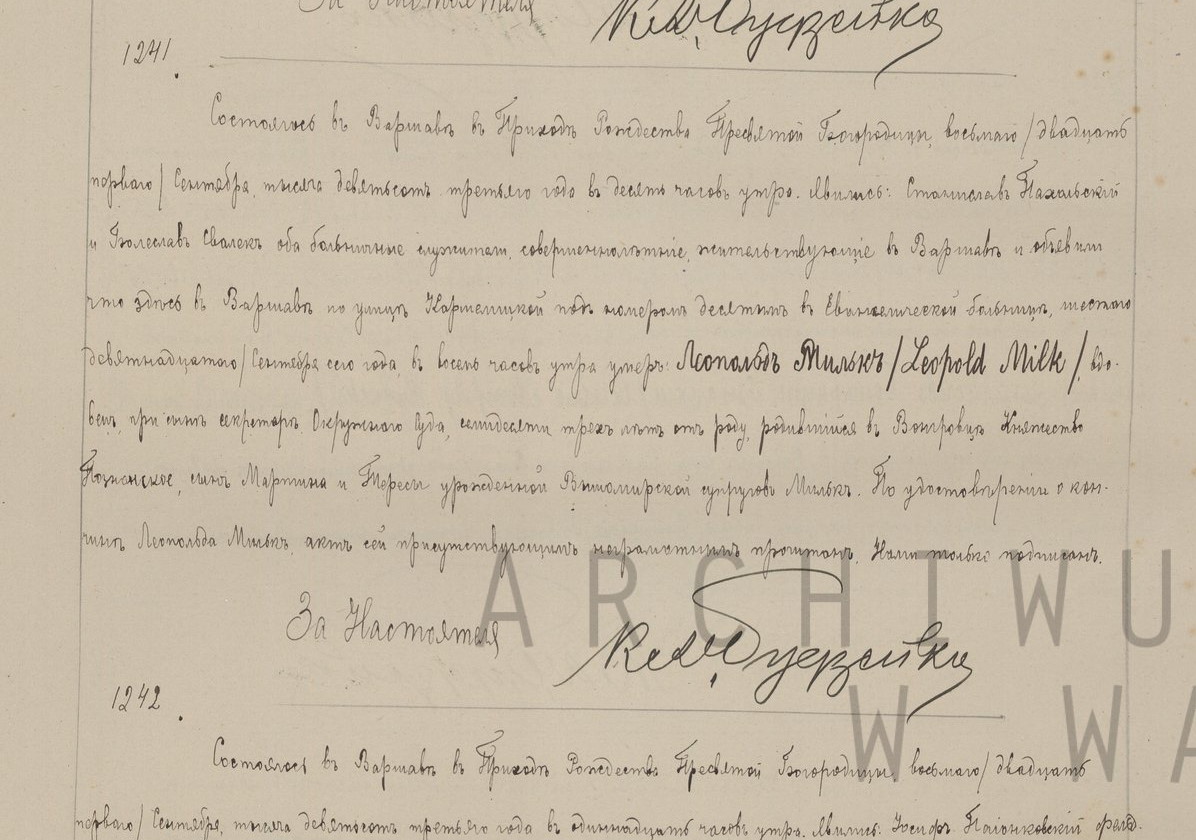 За Настоятеля
1241.
Состоялось въ Варшавѣ въ Приходѣ Рождества Пресвятой Богородицы, восьмаго /двадцать
перваго/ Сентября, тысяча девятьсотъ третьяго года въ десять часовъ утра. Явились: Станиславъ Пахальскій
и Болеславъ Свалекъ оба больничные служители, совершеннолѣтніе, жительствующіе въ Варшавѣ и объявили
что здѣсь въ Варшавѣ по улицѣ Кармелицкой подъ номеромъ десятымъ въ Евангелической больницѣ, шестаго
/девятнадцатаго/ Сентября сего года, въ восемь часовъ утра умеръ: Леопольдъ Милькъ /Leopold Milk/, вдо-
вецъ, при сынѣ секретарѣ Окружнаго Суда, семидесяти трехъ лѣтъ отъ роду, родившійся въ Вонгровцѣ Княжество
Познанское, сынъ Мартина и Тересы урожденной супруговъ Милькъ. По удостовѣреніи о кон-
чинѣ Леопольда Милькъ, актъ сей присутствующимъ неграмотнымъ прочитанъ, Нами только подписанъ.
За Настоятеля
1242.
Состоялось въ Варшавѣ въ Приходѣ Рождества Пресвятой Богородицы, восьмаго /двадцать
перваго/ Сентября, тысяча девятьсотъ третьяго года въ одиннадцать часовъ утра. Явились: Іосифъ
ARCHIWU
W WA